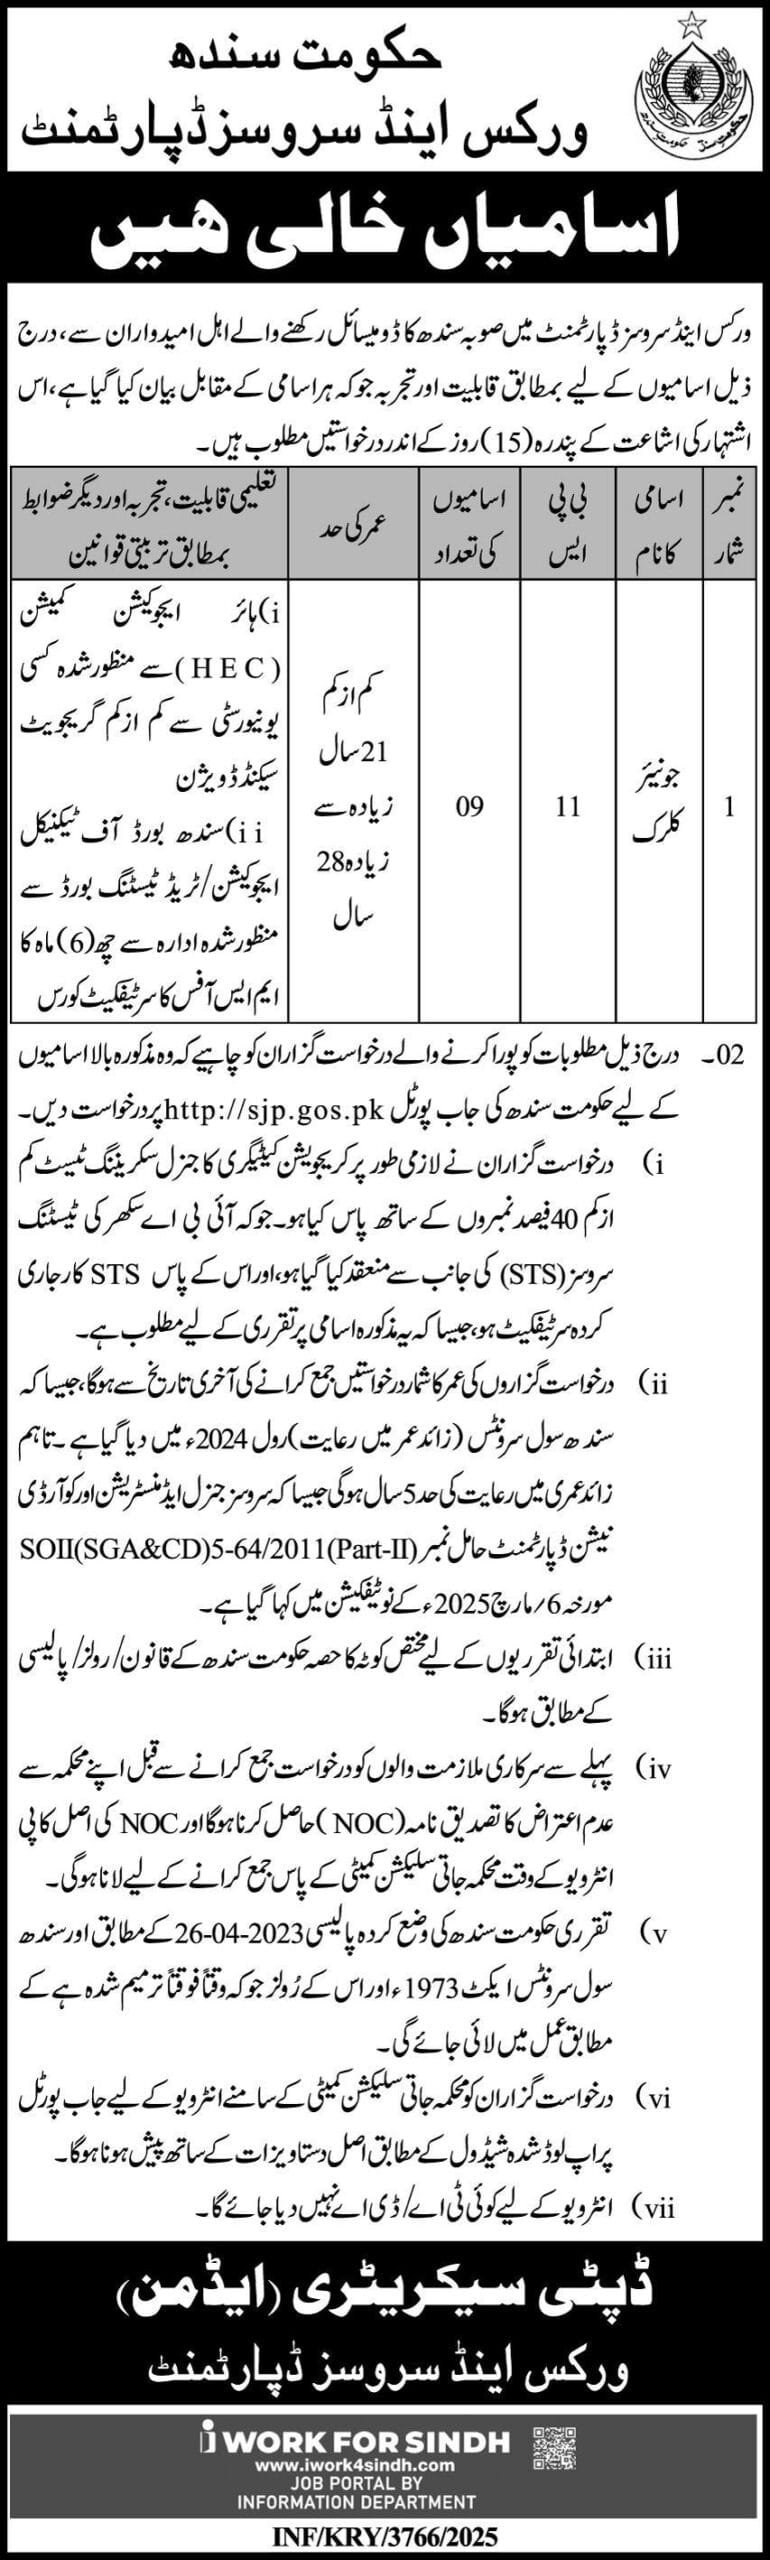 حکومت سندھ
ورکس اینڈ سروسز ڈپارٹمنٹ
حکومتِ سندھ حکومت سنڌ
اسامیاں خالی ھیں
ورکس اینڈ سروسز ڈپارٹمنٹ میں صوبہ سندھ کا ڈومیسائل رکھنے والے اہل امیدواران سے، درج
ذیل اسامیوں کے لیے بمطابق قابلیت اور تجربہ جو کہ ہر اسامی کے مقابل بیان کیا گیا ہے، اس
اشتہار کی اشاعت کے پندرہ (15) روز کے اندر درخواستیں مطلوب ہیں۔
نمبر شمار
اسامی کا نام
بی پی ایس
اسامیوں کی تعداد
عمر کی حد
تعلیمی قابلیت، تجربہ اور دیگر ضوابط
بمطابق تربیتی قوانین
1
جونیئر
کلرک
11
09
کم از کم
21 سال
زیادہ سے
زیادہ 28
سال
i) ہائر ایجوکیشن کمیشن
(HEC) سے منظور شدہ کسی
یونیورسٹی سے کم از کم گریجویٹ
سیکنڈ ڈویژن
ii) سندھ بورڈ آف ٹیکنیکل
ایجوکیشن/ٹریڈ ٹیسٹنگ بورڈ سے
منظور شدہ ادارہ سے چھ (6) ماہ کا
ایم ایس آفس کا سرٹیفکیٹ کورس
02۔ درج ذیل مطلوبات کو پورا کرنے والے درخواست گزاران کو چاہیے کہ وہ مذکورہ بالا اسامیوں
کے لیے حکومت سندھ کی جاب پورٹل http://sjp.gos.pk پر درخواست دیں۔
i) درخواست گزاران نے لازمی طور پر گریجویشن کیٹیگری کا جنرل سکریننگ ٹیسٹ کم
از کم 40 فیصد نمبروں کے ساتھ پاس کیا ہو۔ جو کہ آئی بی اے سکھر کی ٹیسٹنگ
سروسز (STS) کی جانب سے منعقد کیا گیا ہو، اور اس کے پاس STS کا رجاری
کردہ سرٹیفکیٹ ہو، جیسا کہ یہ مذکورہ اسامی پر تقرری کے لیے مطلوب ہے۔
ii) درخواست گزاروں کی عمر کا شمار درخواستیں جمع کرانے کی آخری تاریخ سے ہوگا، جیسا کہ
سندھ سول سرونٹس (زائد عمر میں رعایت) رول 2024ء میں دیا گیا ہے۔ تاہم
زائد عمری میں رعایت کی حد 5 سال ہوگی جیسا کہ سروسز جنرل ایڈمنسٹریشن اور کوآرڈی
نیشن ڈپارٹمنٹ حامل نمبر SOII(SGA&CD)5-64/2011(Part-II)
مورخہ 6/مارچ 2025ء کے نوٹیفکیشن میں کہا گیا ہے۔
iii) ابتدائی تقرریوں کے لیے مختص کوٹہ کا حصہ حکومت سندھ کے قانون/رولز/پالیسی
کے مطابق ہوگا۔
iv) پہلے سے سرکاری ملازمت والوں کو درخواست جمع کرانے سے قبل اپنے محکمہ سے
عدم اعتراض کا تصدیق نامہ (NOC) حاصل کرنا ہوگا اور NOC کی اصل کاپی
انٹرویو کے وقت محکمہ جاتی سلیکشن کمیٹی کے پاس جمع کرانے کے لیے لانا ہوگی۔
v) تقرری حکومت سندھ کی وضع کردہ پالیسی 26-04-2023 کے مطابق اور سندھ
سول سرونٹس ایکٹ 1973ء اور اس کے رُولز جو کہ وقتاً فوقتاً ترمیم شدہ ہے کے
مطابق عمل میں لائی جائے گی۔
vi) درخواست گزاران کو محکمہ جاتی سلیکشن کمیٹی کے سامنے انٹرویو کے لیے جاب پورٹل
پر اپ لوڈ شدہ شیڈول کے مطابق اصل دستاویزات کے ساتھ پیش ہونا ہوگا۔
vii) انٹرویو کے لیے کوئی ٹی اے/ڈی اے نہیں دیا جائے گا۔
ڈپٹی سیکریٹری (ایڈمن)
ورکس اینڈ سروسز ڈپارٹمنٹ
i WORK FOR SINDH
www.iwork4sindh.com
JOB PORTAL BY
INFORMATION DEPARTMENT
INF/KRY/3766/2025